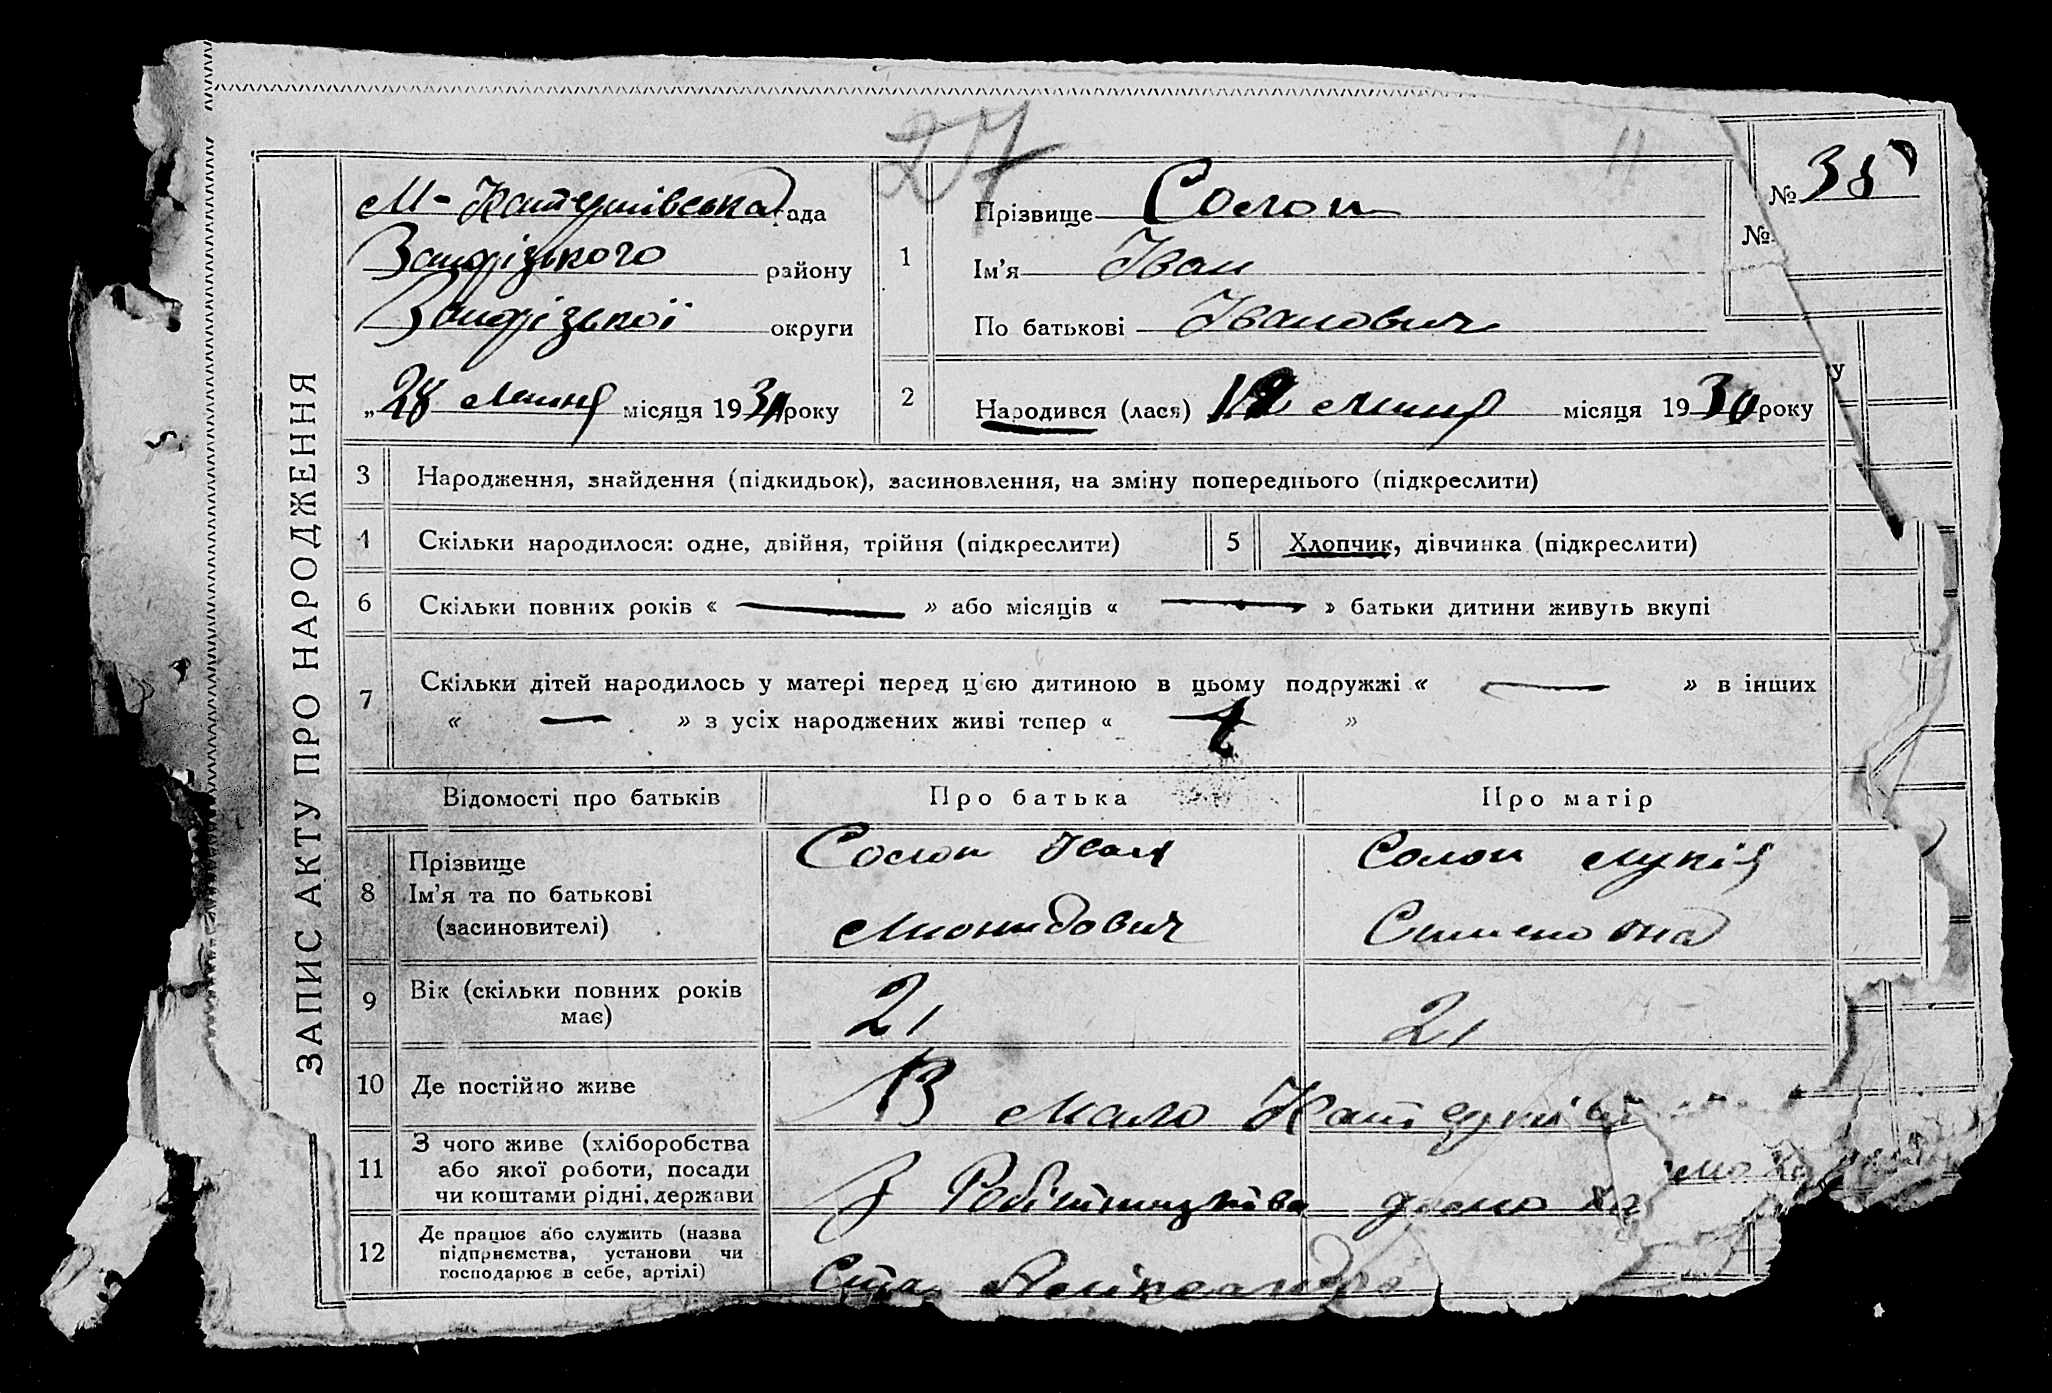 27
11
М-Катеринівська рада
Запорізького району
Запорізької округи
„28 Липня місяця 1930 року
1
Прізвище Солоп
Ім'я Іван
По батькові Іванович
№ 38
№
2
Народився (лася) 12 Липня місяця 1930 року
у
ЗАПИС АКТУ ПРО НАРОДЖЕННЯ
3 Народження, знайдення (підкидьок), засиновлення, на зміну попереднього (підкреслити)
4 Скільки народилося: одне, двійня, трійня (підкреслити)
5 Хлопчик, дівчинка (підкреслити)
6 Скільки повних років « — » або місяців « — » батьки дитини живуть вкупі
7 Скільки дітей народилось у матері перед цією дитиною в цьому подружжі « — » в інших
« — » з усіх народжених живі тепер « »
Відомості про батьків Про батька Про матір
8 Прізвище
Ім'я та по батькові
(засиновителі)
Солоп Іван
Солоп Лукія
Семеновна
9 Вік (скільки повних років
має)
21
21
10 Де постійно живе
В Мало Катеринівці
11 З чого живе (хліборобства
або якої роботи, посади
чи коштами рідні, держави
З Робітництва домо ха
мо ха
12 Де працює або служить (назва
підприємства, установи чи
господарює в себе, артілі)
Ст. Олександрі